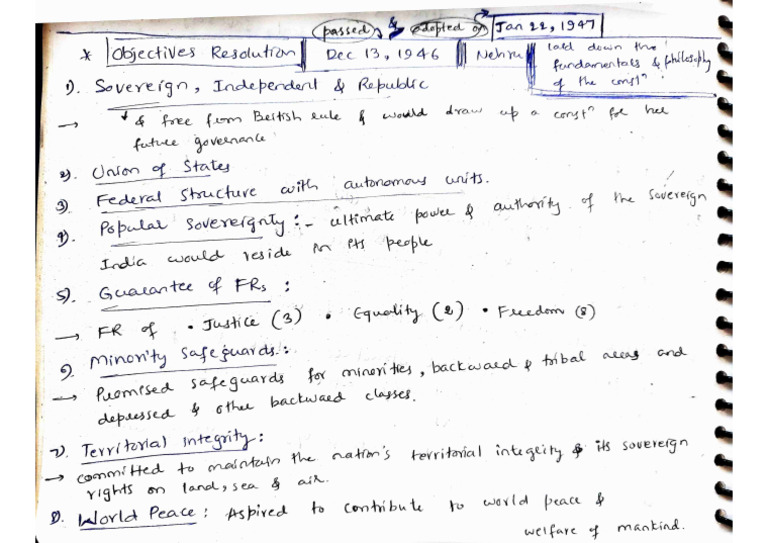 passed & adopted on Jan 22, 1947
* Objectives Resolution Dec 13, 1946 Nehru laid down the
fundamentals & philosophy
of the constn.
1). Sovereign, Independent & Republic
→ & free from British rule & would draw up a constn for her
future governance
2). Union of States
3) Federal Structure with autonomous units.
4). Popular Sovereignty :- ultimate power & authority of the Sovereign
India would reside in its people
5). Guarantee of FRs :
→ FR of • Justice (3) • Equality (2) • Freedom (8)
6). Minority Safeguards :
→ Promised safeguards for minorities, backward & tribal areas and
depressed & other backward classes.
7). Territorial Integrity :
→ committed to maintain the nation's territorial integrity & its sovereign
rights on land, sea & air.
8). World Peace : Aspired to contribute to world peace &
welfare of mankind.